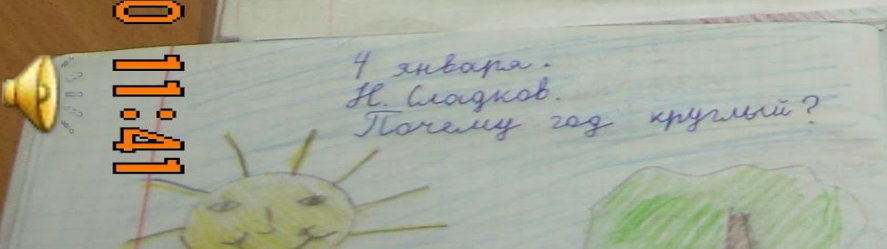 0 11:41
4 января.
Н. Сладков.
Почему год круглый?